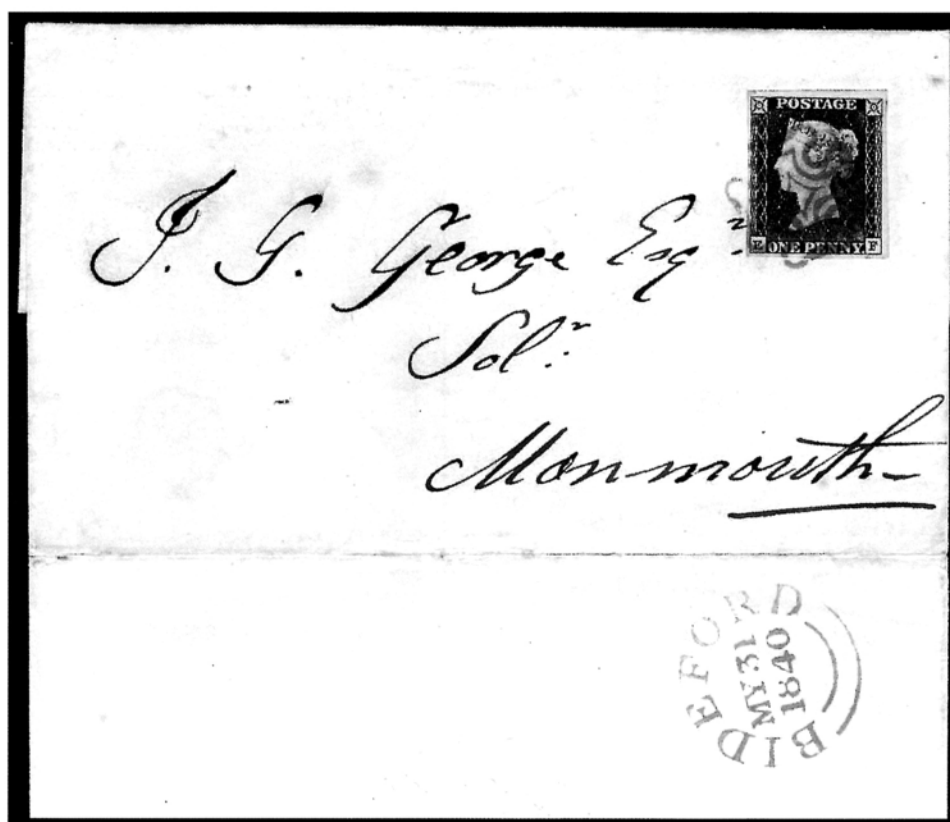 POSTAGE
E ONE PENNY. F
J. G. George Esqʳ.
Solʳ:
Monmouth
BIDEFORD
MY 31
1840